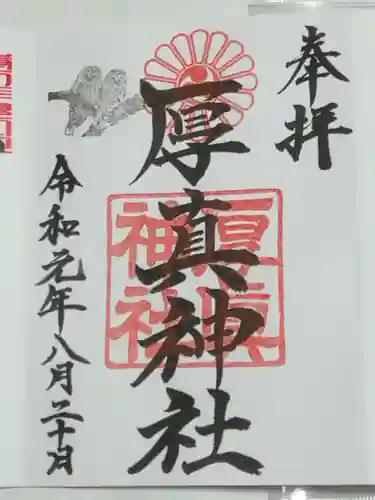 奉拝
厚真神社
厚真
神社
令和元年八月二十日